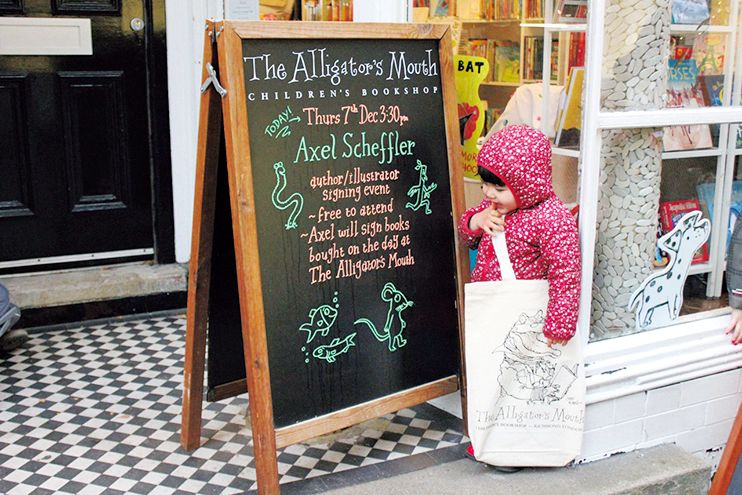 The Alligator's Mouth
CHILDREN'S BOOKSHOP
TODAY!
Thurs 7th Dec 3·30pm
Axel Scheffler
author/illustrator
signing event
~ free to attend
~ Axel will sign books
bought on the day at
The Alligator's Mouth
BAT
The Alligator's Mouth